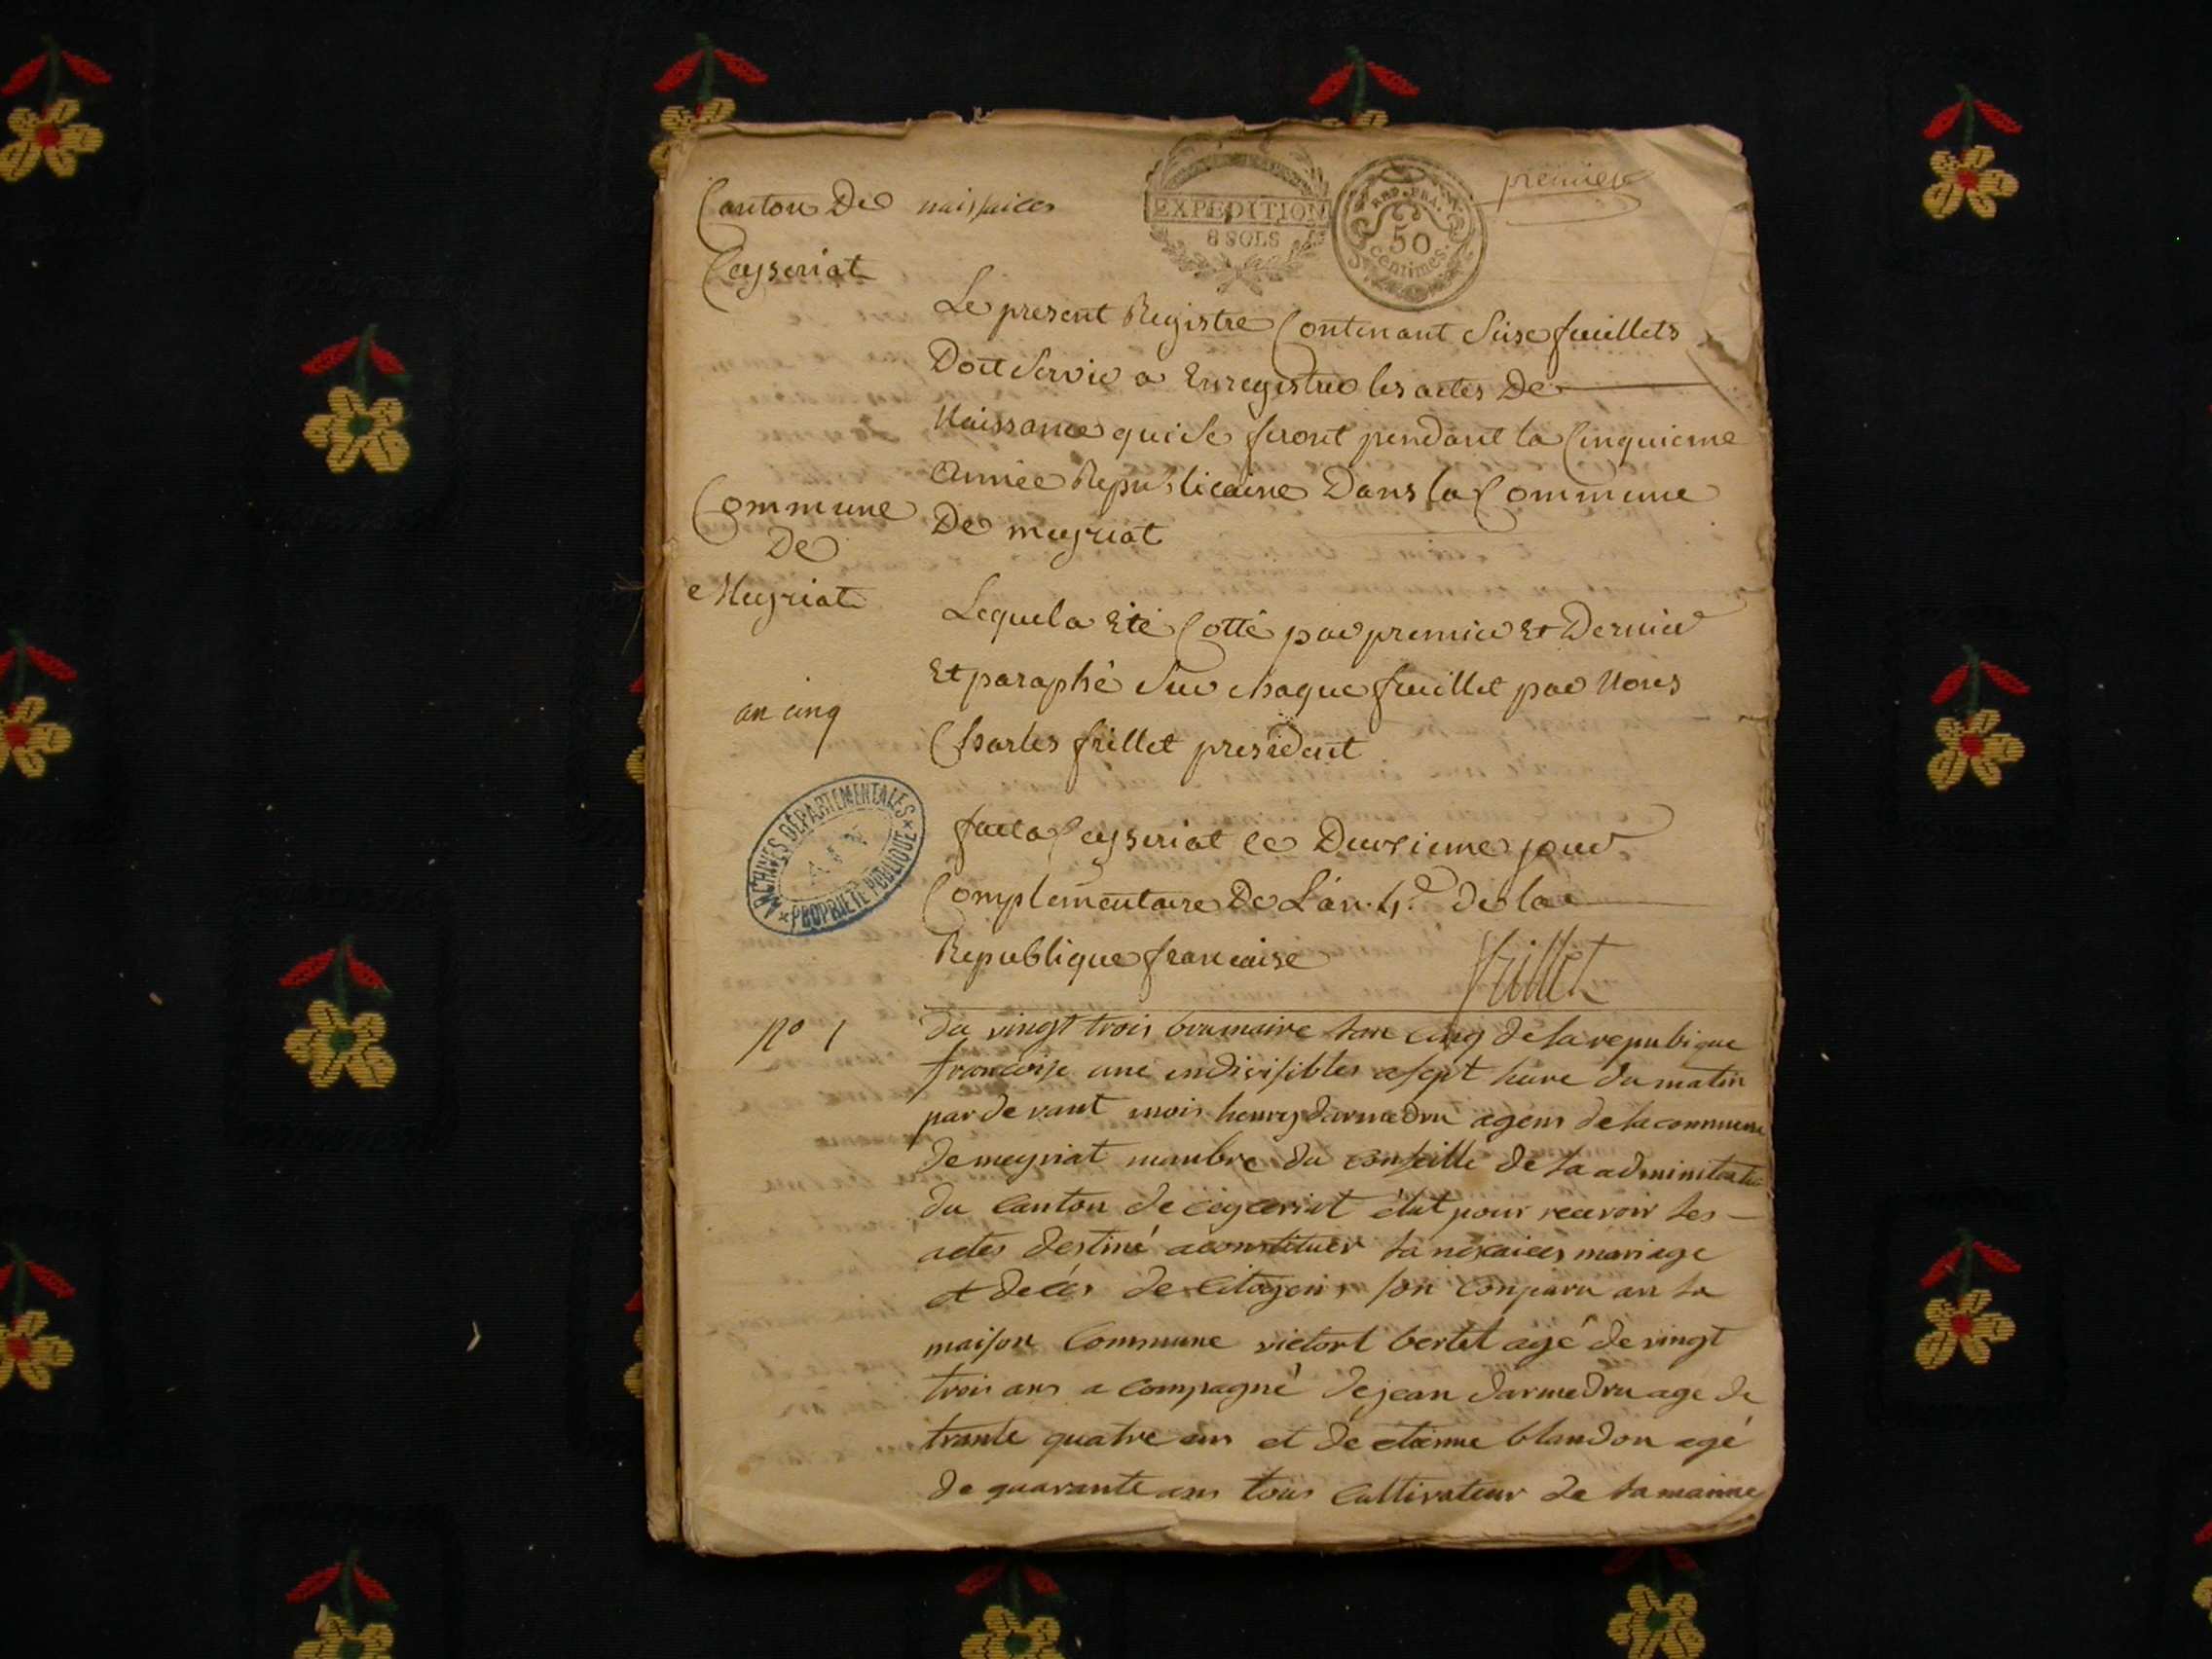 Canton De naissaices
Ceyseriat
EXPEDITION
8 SOLS
REP. FRA.
50
centimes.
premier
Le present Registre Contenant Seise feuillets
Doit Servir a Enregistrer les actes De
Naissance qui se feront pendant la Cinquieme
Année Republicaine Dans la Commune
De meyriat
Commune
De
Meyriat
an cinq
Lequel a Eté Cotté par premier Et Dernier
Et paraphé Sur chaque feuillet par Nous
Charles frillet president
ARCHIVES DÉPARTEMENTALES
AIN
PROPRIÉTÉ PUBLIQUE
fait a Ceyseriat le Deuxieme jour
Complementaire De L'an 4.e de la
Republique francaise
frillet
No 1
du vingt trois brumaire lan cinq de la repubique
francoise une indivisibles a sept heure du matin
par devant mois henry darmedru agens de la commune
de meyriat manbre du conseille de la
du Canton de ceyceriat élut pour recevoir les
actes destiné a constituer la nexaices mariage
et decés de Citoyens son conparu an la
maison Commune victort bertet agé de vingt
trois ans a compagné de jean darmedru age de
trante quatre ans et de etienne blandon agé
de quarante ans tous Cultivateur de la